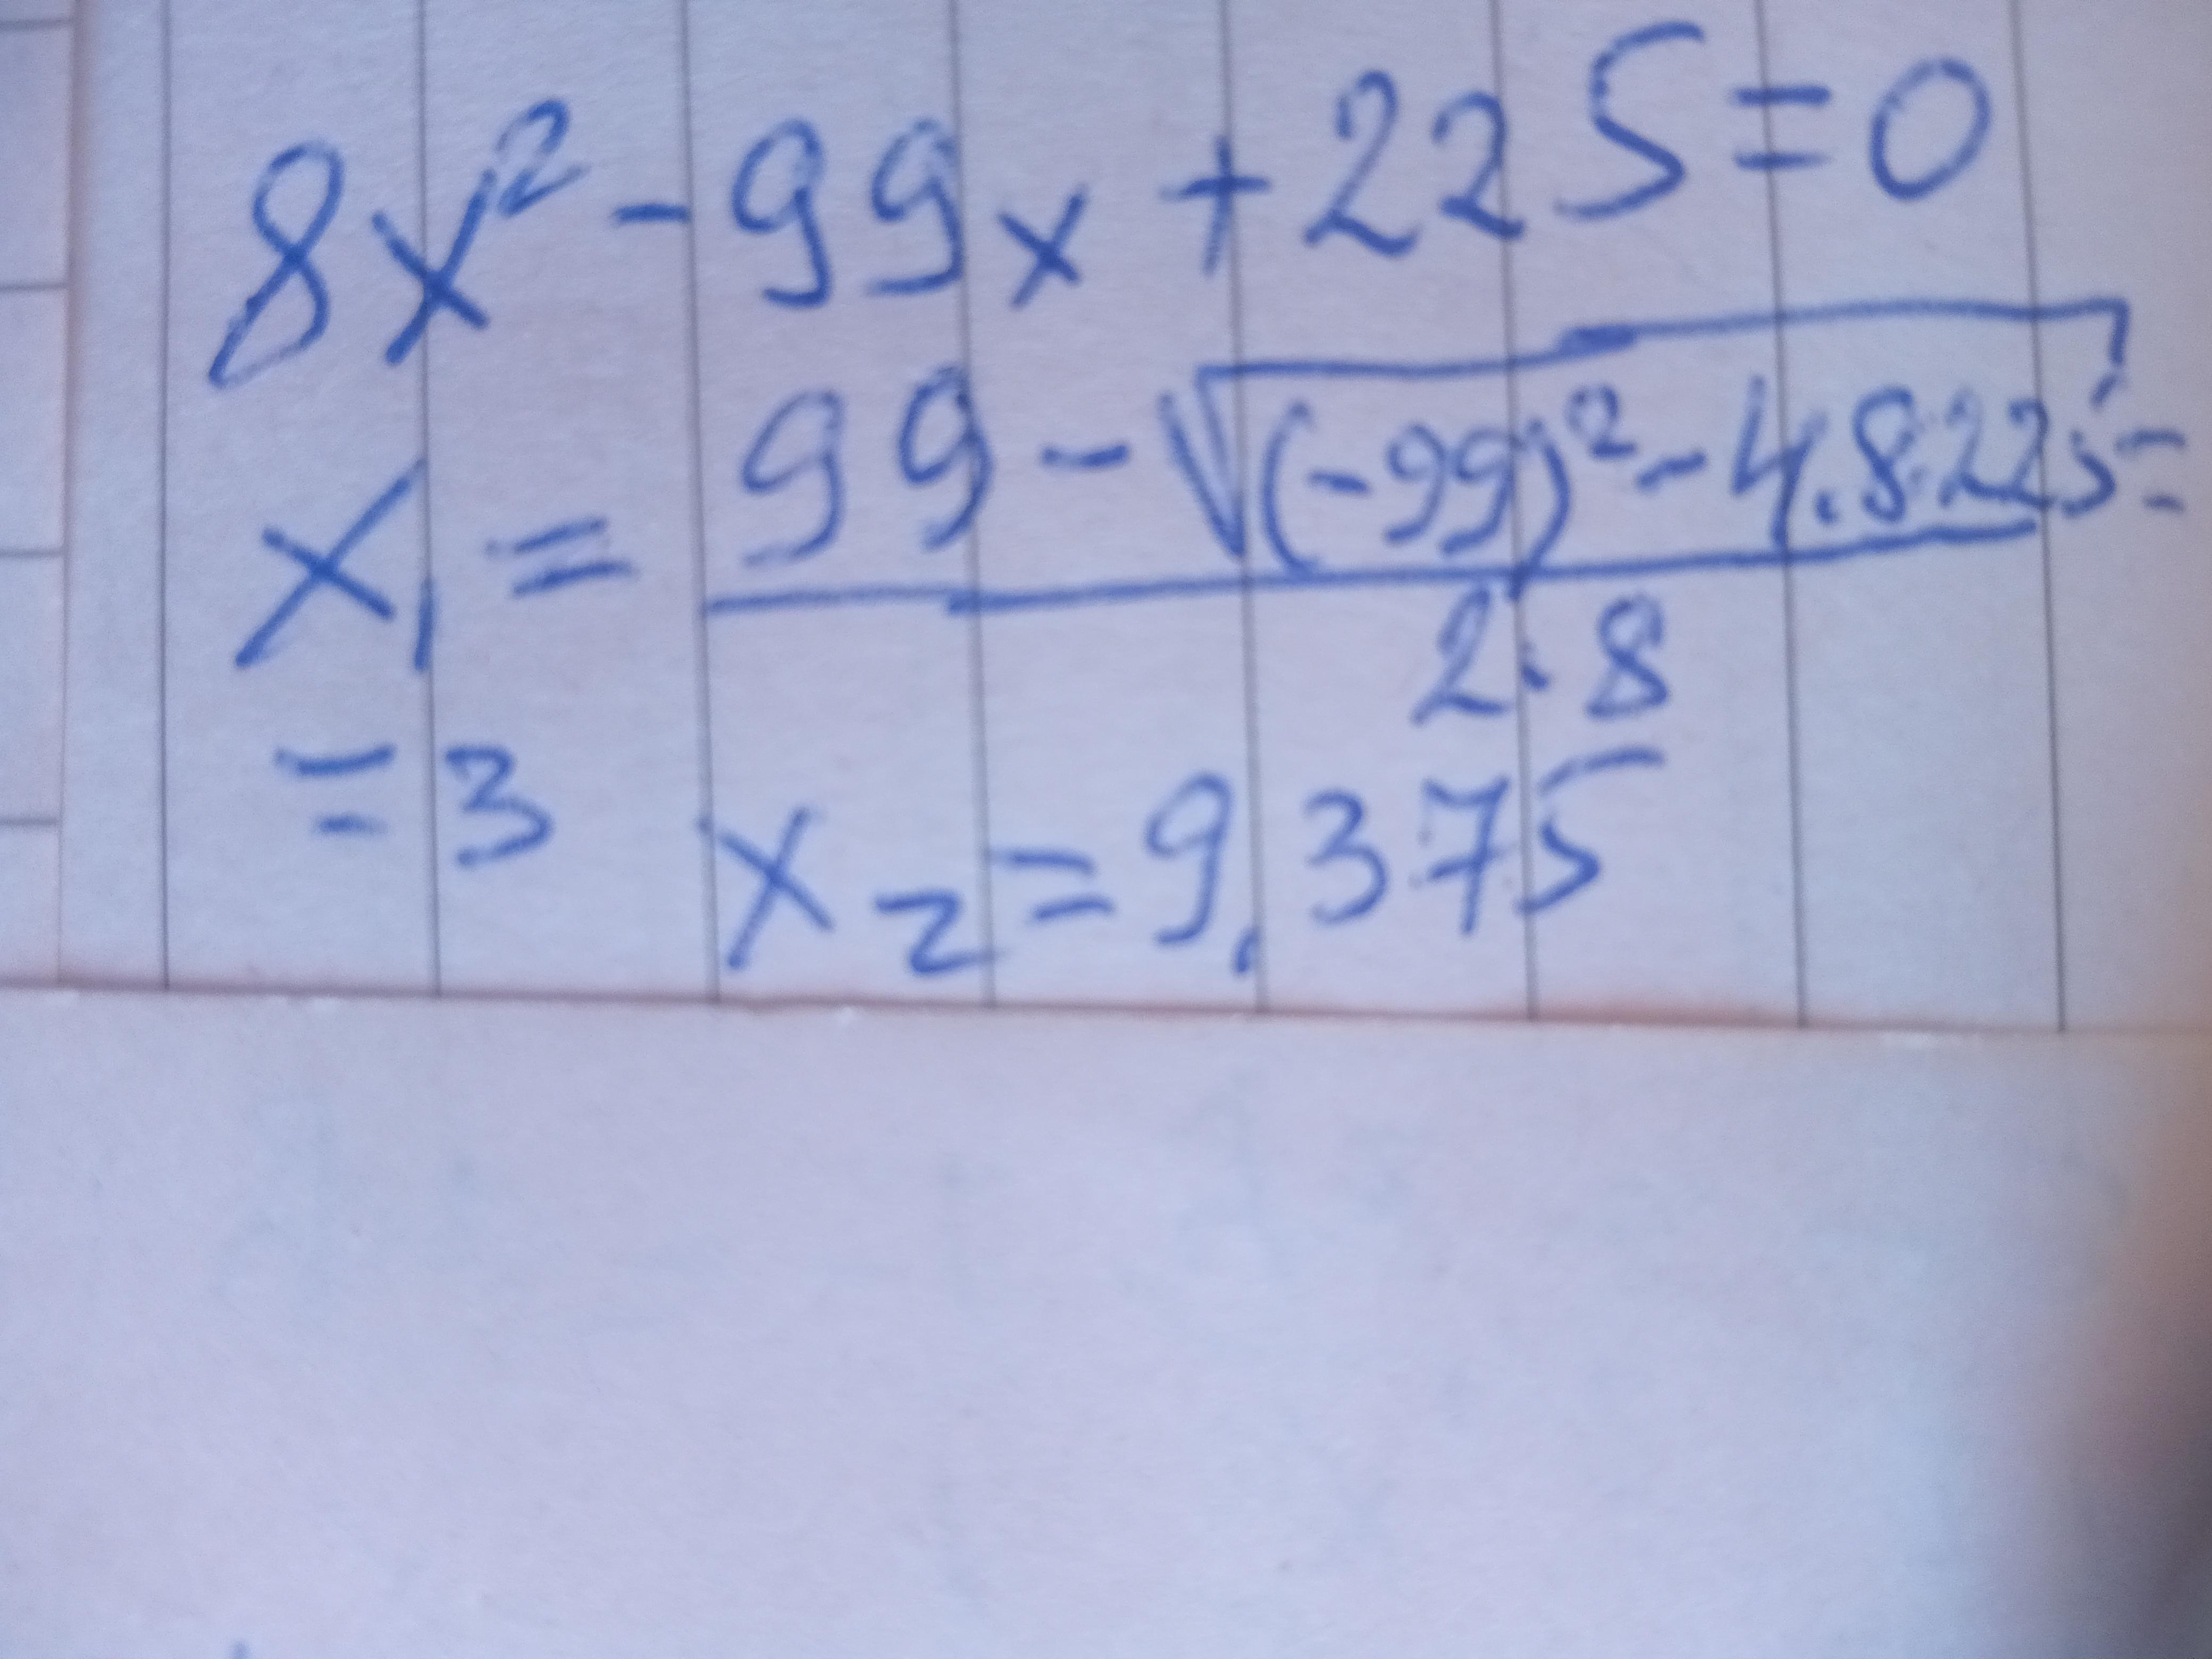 8x² - 99x + 225 = 0
x₁ = (99 - √((-99)² - 4.8.225)) / (2.8) =
= 3 x₂ = 9,375